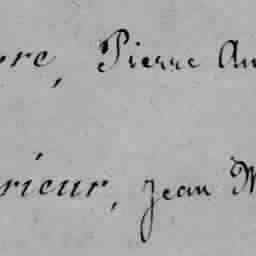 rre, Pierre Au
rieur, Jean M